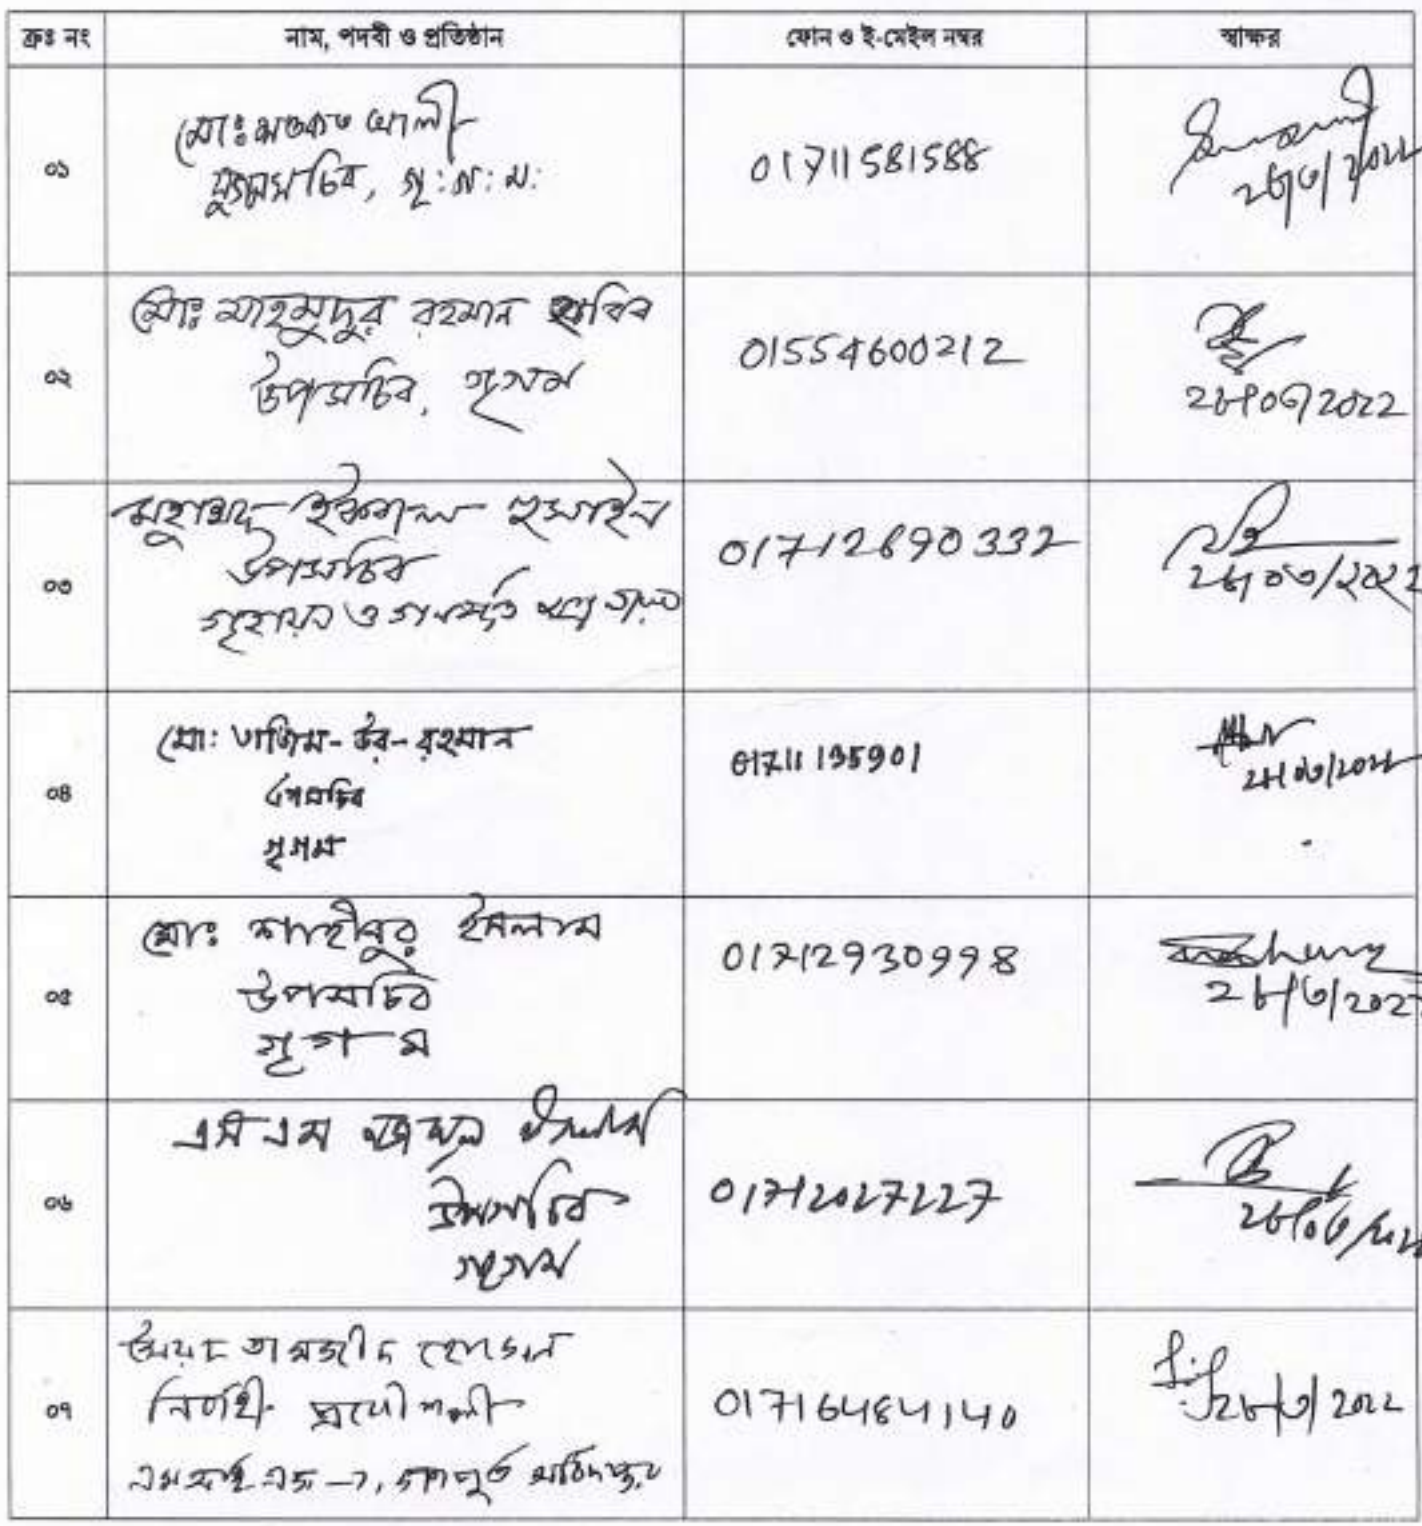 ক্রঃ নং নাম, পদবী ও প্রতিষ্ঠান ফোন ও ই-মেইল নম্বর স্বাক্ষর
০১
মোঃ আলী
যুগ্মসচিব, গৃ:গ:ম:
01711581588
২৮/৩/2022
০২
মোঃ মাহমুদুর রহমান হাবিব
উপসচিব, গৃগম
01554600212
২৮/০৩/2022
০৩
মুহাম্মদ ইকবাল হুসাইন
উপসচিব
গৃহায়ন ও গণপূর্ত মন্ত্রণালয়
01712690332
২৮/০৩/২০২২
০৪
মো: তাজিম-উর-রহমান
উপসচিব
গৃগম
01711195901
২৮/০৩/2022
০৫
মোঃ শাহীনুর ইসলাম
উপসচিব
গৃগম
01712930998
২৮/৩/2022
০৬
এস এম নজরুল ইসলাম
উপসচিব
গৃগম
01712027227
২৮/০৩/২০২২
০৭
সৈয়দ তানজীদ হোসেন
নির্বাহী প্রকৌশলী
গণপূর্ত অধিদপ্তর
01716484140
২৮/৩/2022